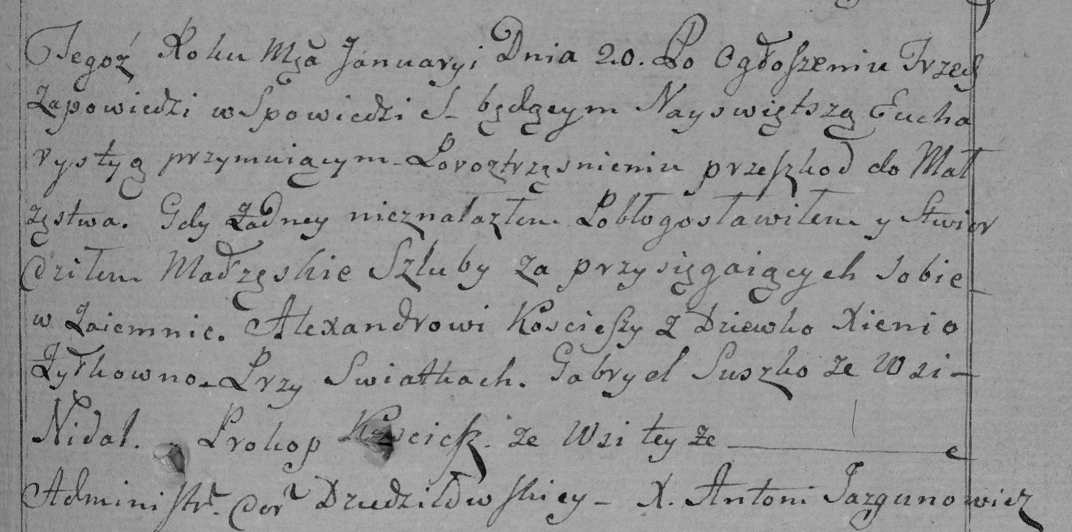 Tegoż Roku Mca Januaryi Dnia 20. Po Ogłoszeniu Trzech
Zapowiedzi w Spowiedzi S. będącym Nayswiętszą Eucha
rystyą przymuiącym. Po roztrzęsnieniu przeszkod do Mał
zęstwa. Gdy Żadney nieznalazłem Pobłogosławiłem y Stwier
dziłem Małzęskie Szluby za przysięgaiących sobie
w Zaiemnie. Alexandrowi Koscieszy z Dziewko Xienio
Żyłkowno. Przy Swiatkach. Gabryel Suszko ze Wsi
Nidal. Prokop Kosciesz. ze Wsi tey ze
Administr. Cer Dziedziłowskiey - X. Antoni Jazgunowicz